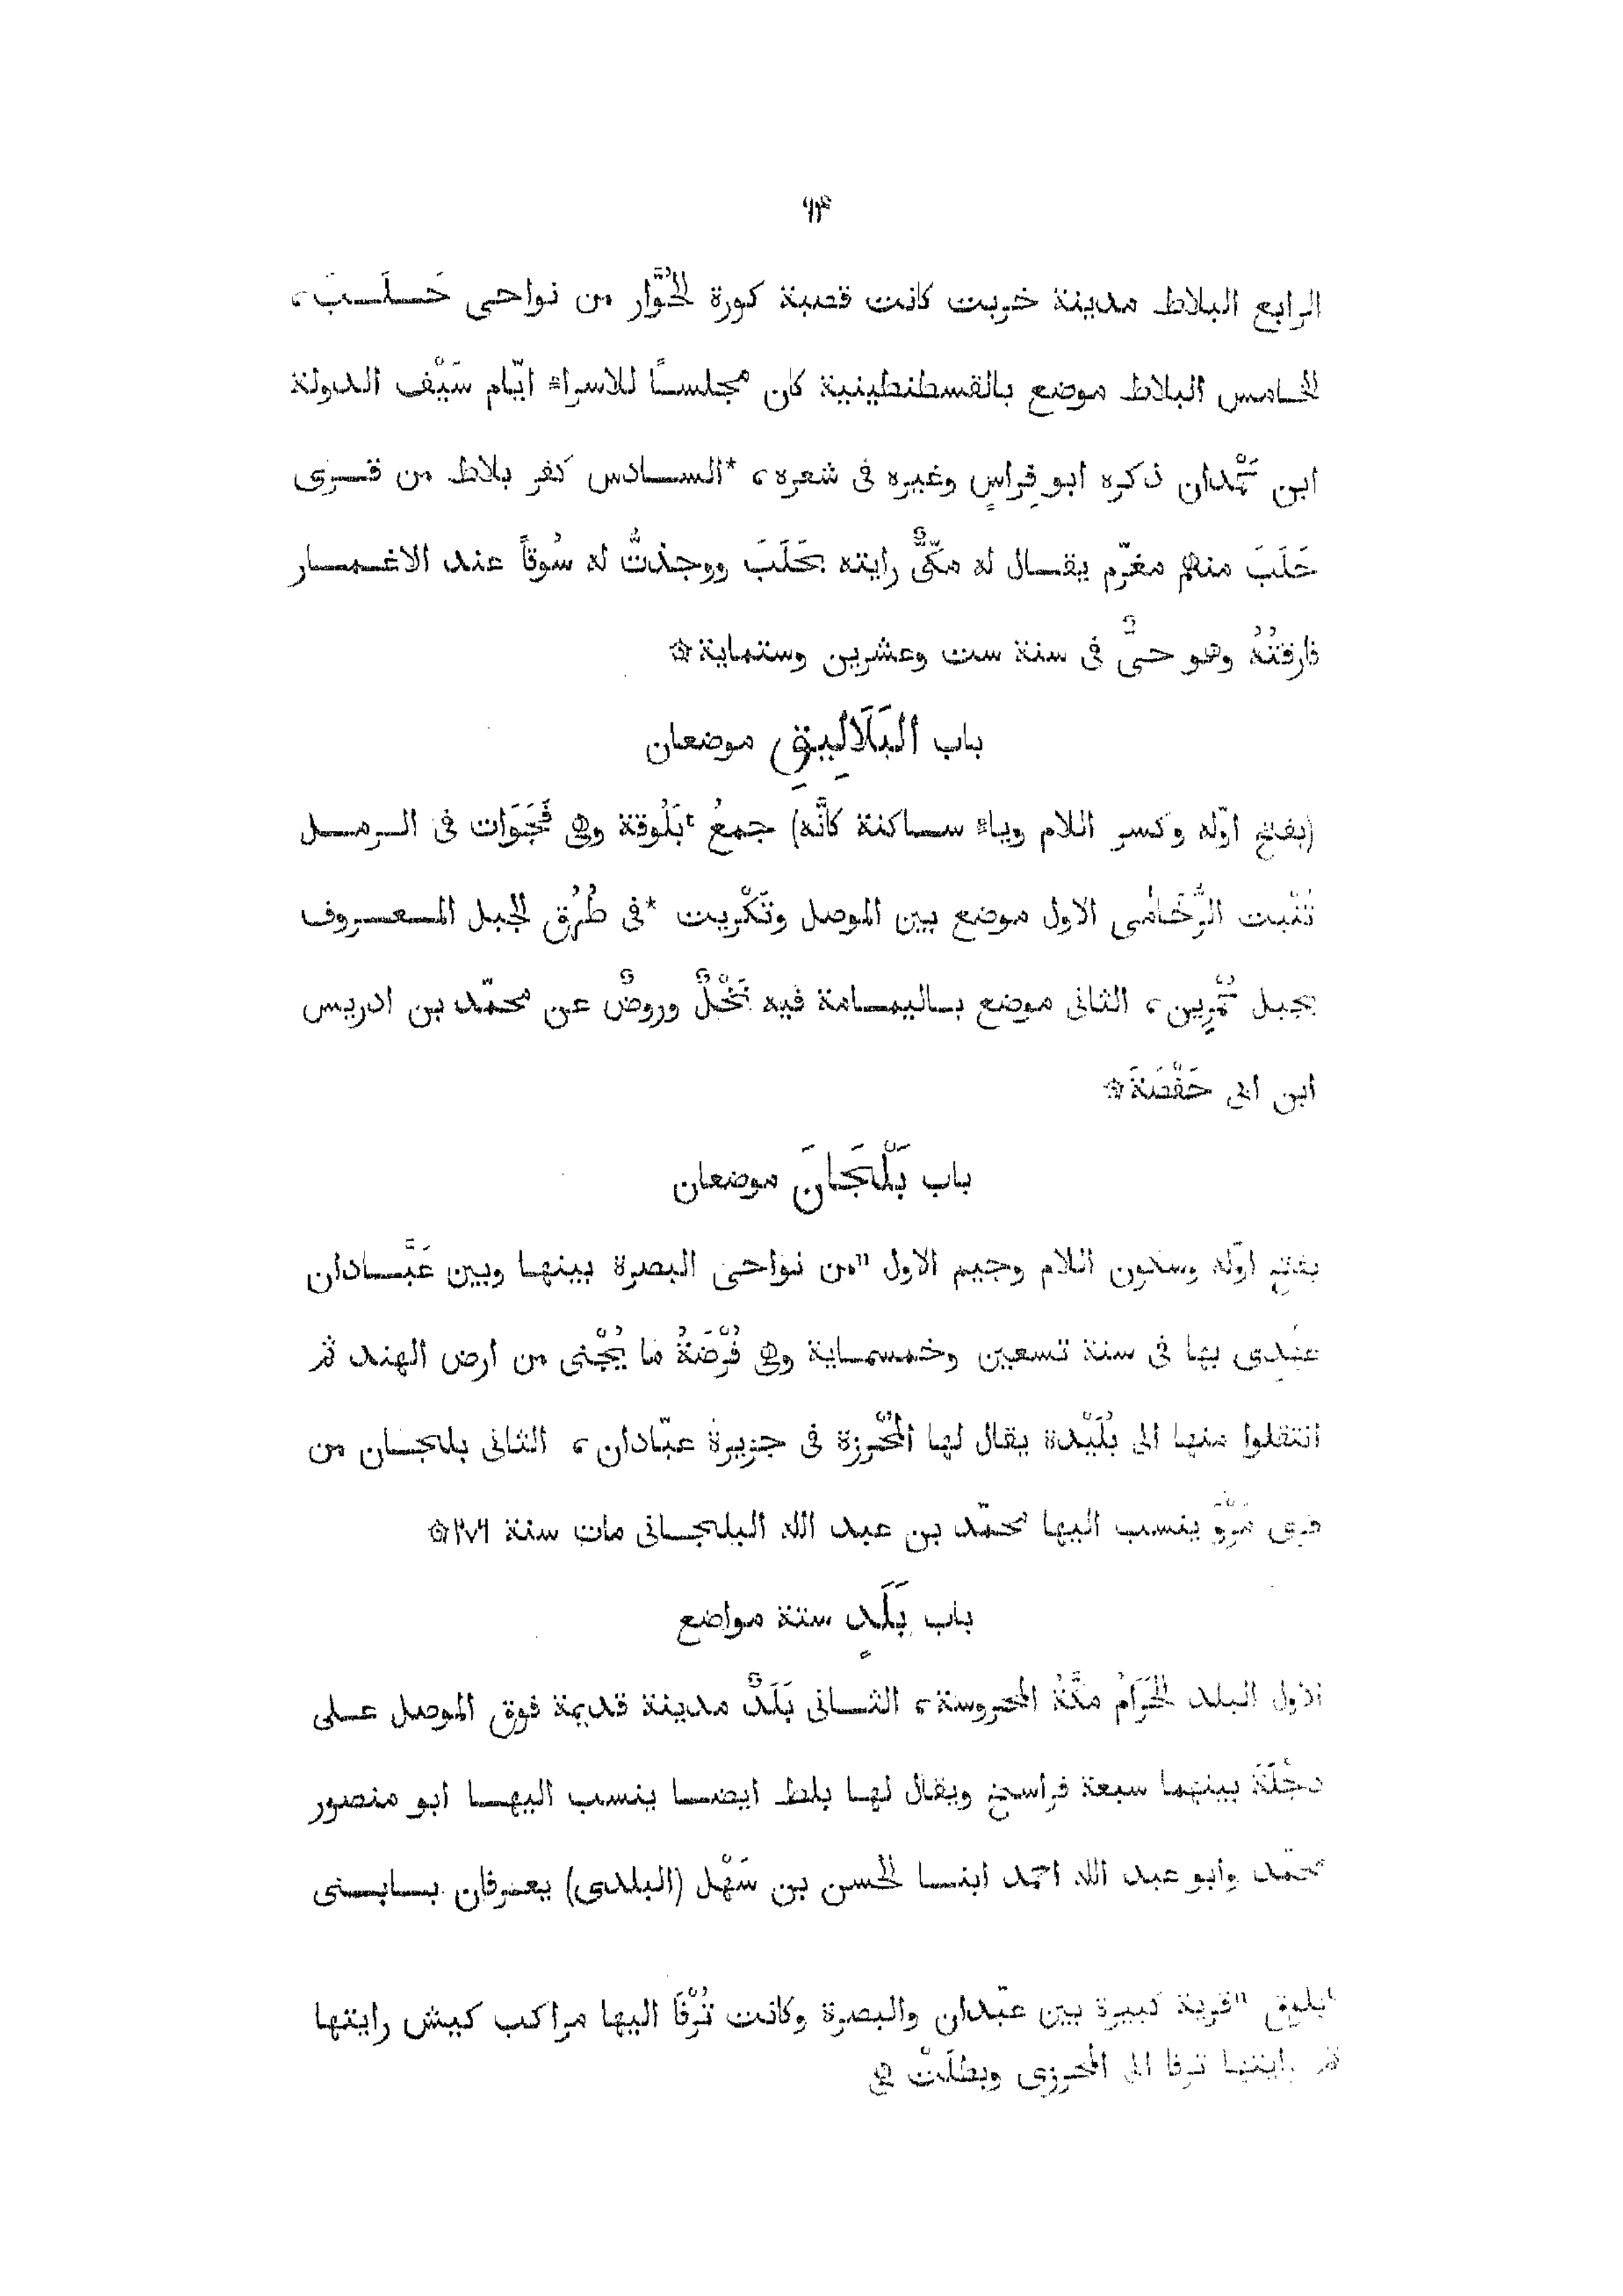 ٦٤
الرابع البلاط مدينة خربت كانت قصبة كورة الحُوَّار من نواحى حَـلَـب ،
الخامس البلاط موضع بالقسطنطينية كان مجلسًا للاسراء ايّام سَيْف الدولة
ابن حَمْدان ذكره ابو فِراسٍ وغيره فى شعره ، *السادس كفر بلاط من قرى
حَلَبَ منهم مغرّم يقال له مكّىٌّ رايته بحَلَبَ ووجدتُّ له سُوقًا عند الاغمار
فارقتُهُ وهو حىٌّ فى سنة ست وعشرين وستماية ۞
باب البَلَالِيقِ موضعان
(بفتح اوّله وكسر اللام وياء ساكنة كانّه) جمعُ ᵗبَلُوقة وهى فَجَوَات فى الرمل
تُنْبت الرُّخَامى الاول موضع بين الموصل وتَكْريت *فى طُرُق الجبل المعروف
بجبل حُمْرِين ، الثانى موضع باليمامة فيه نَخْلٌ وروضٌ عن محمّد بن ادريس
ابن ابى حَفْصَةَ ۞
باب بَلْجَانَ موضعان
بفتح اوّله وسكون اللام وجيم الاول ᵘمن نواحى البصرة بينها وبين عَبَّادان
عهدى بها فى سنة تسعين وخمسماية وهى فُرْضَةُ ما يُجْنى من ارض الهند ثم
انتقلوا منها الى بُلَيْدة يقال لها المُحْرزة فى جزيرة عبّادان ، الثانى بلجان من
قرى مَرْوَ ينسب اليها محمّد بن عبد الله البلجانى مات سنة ٢٧٦ ۞
باب بَلَدٍ ستة مواضع
الاول البلد الحَرَامُ مكّةُ المحروسة ، الثانى بَلَدٌ مدينة قديمة فوق الموصل على
دجْلَةَ بينهما سبعة فراسخ ويقال لها بلط ايضا ينسب اليها ابو منصور
محمّد وابو عبد الله احمد ابنا الحسن بن سَهْل (البلدى) يعرفان بابنى
ᵗبلوق ᵘقرية كبيرة بين عبّدان والبصرة وكانت تُرْفَا اليها مراكب كيش رايتها
ثم رايتها ترفا الى المحرزى وبطلَتْ هى